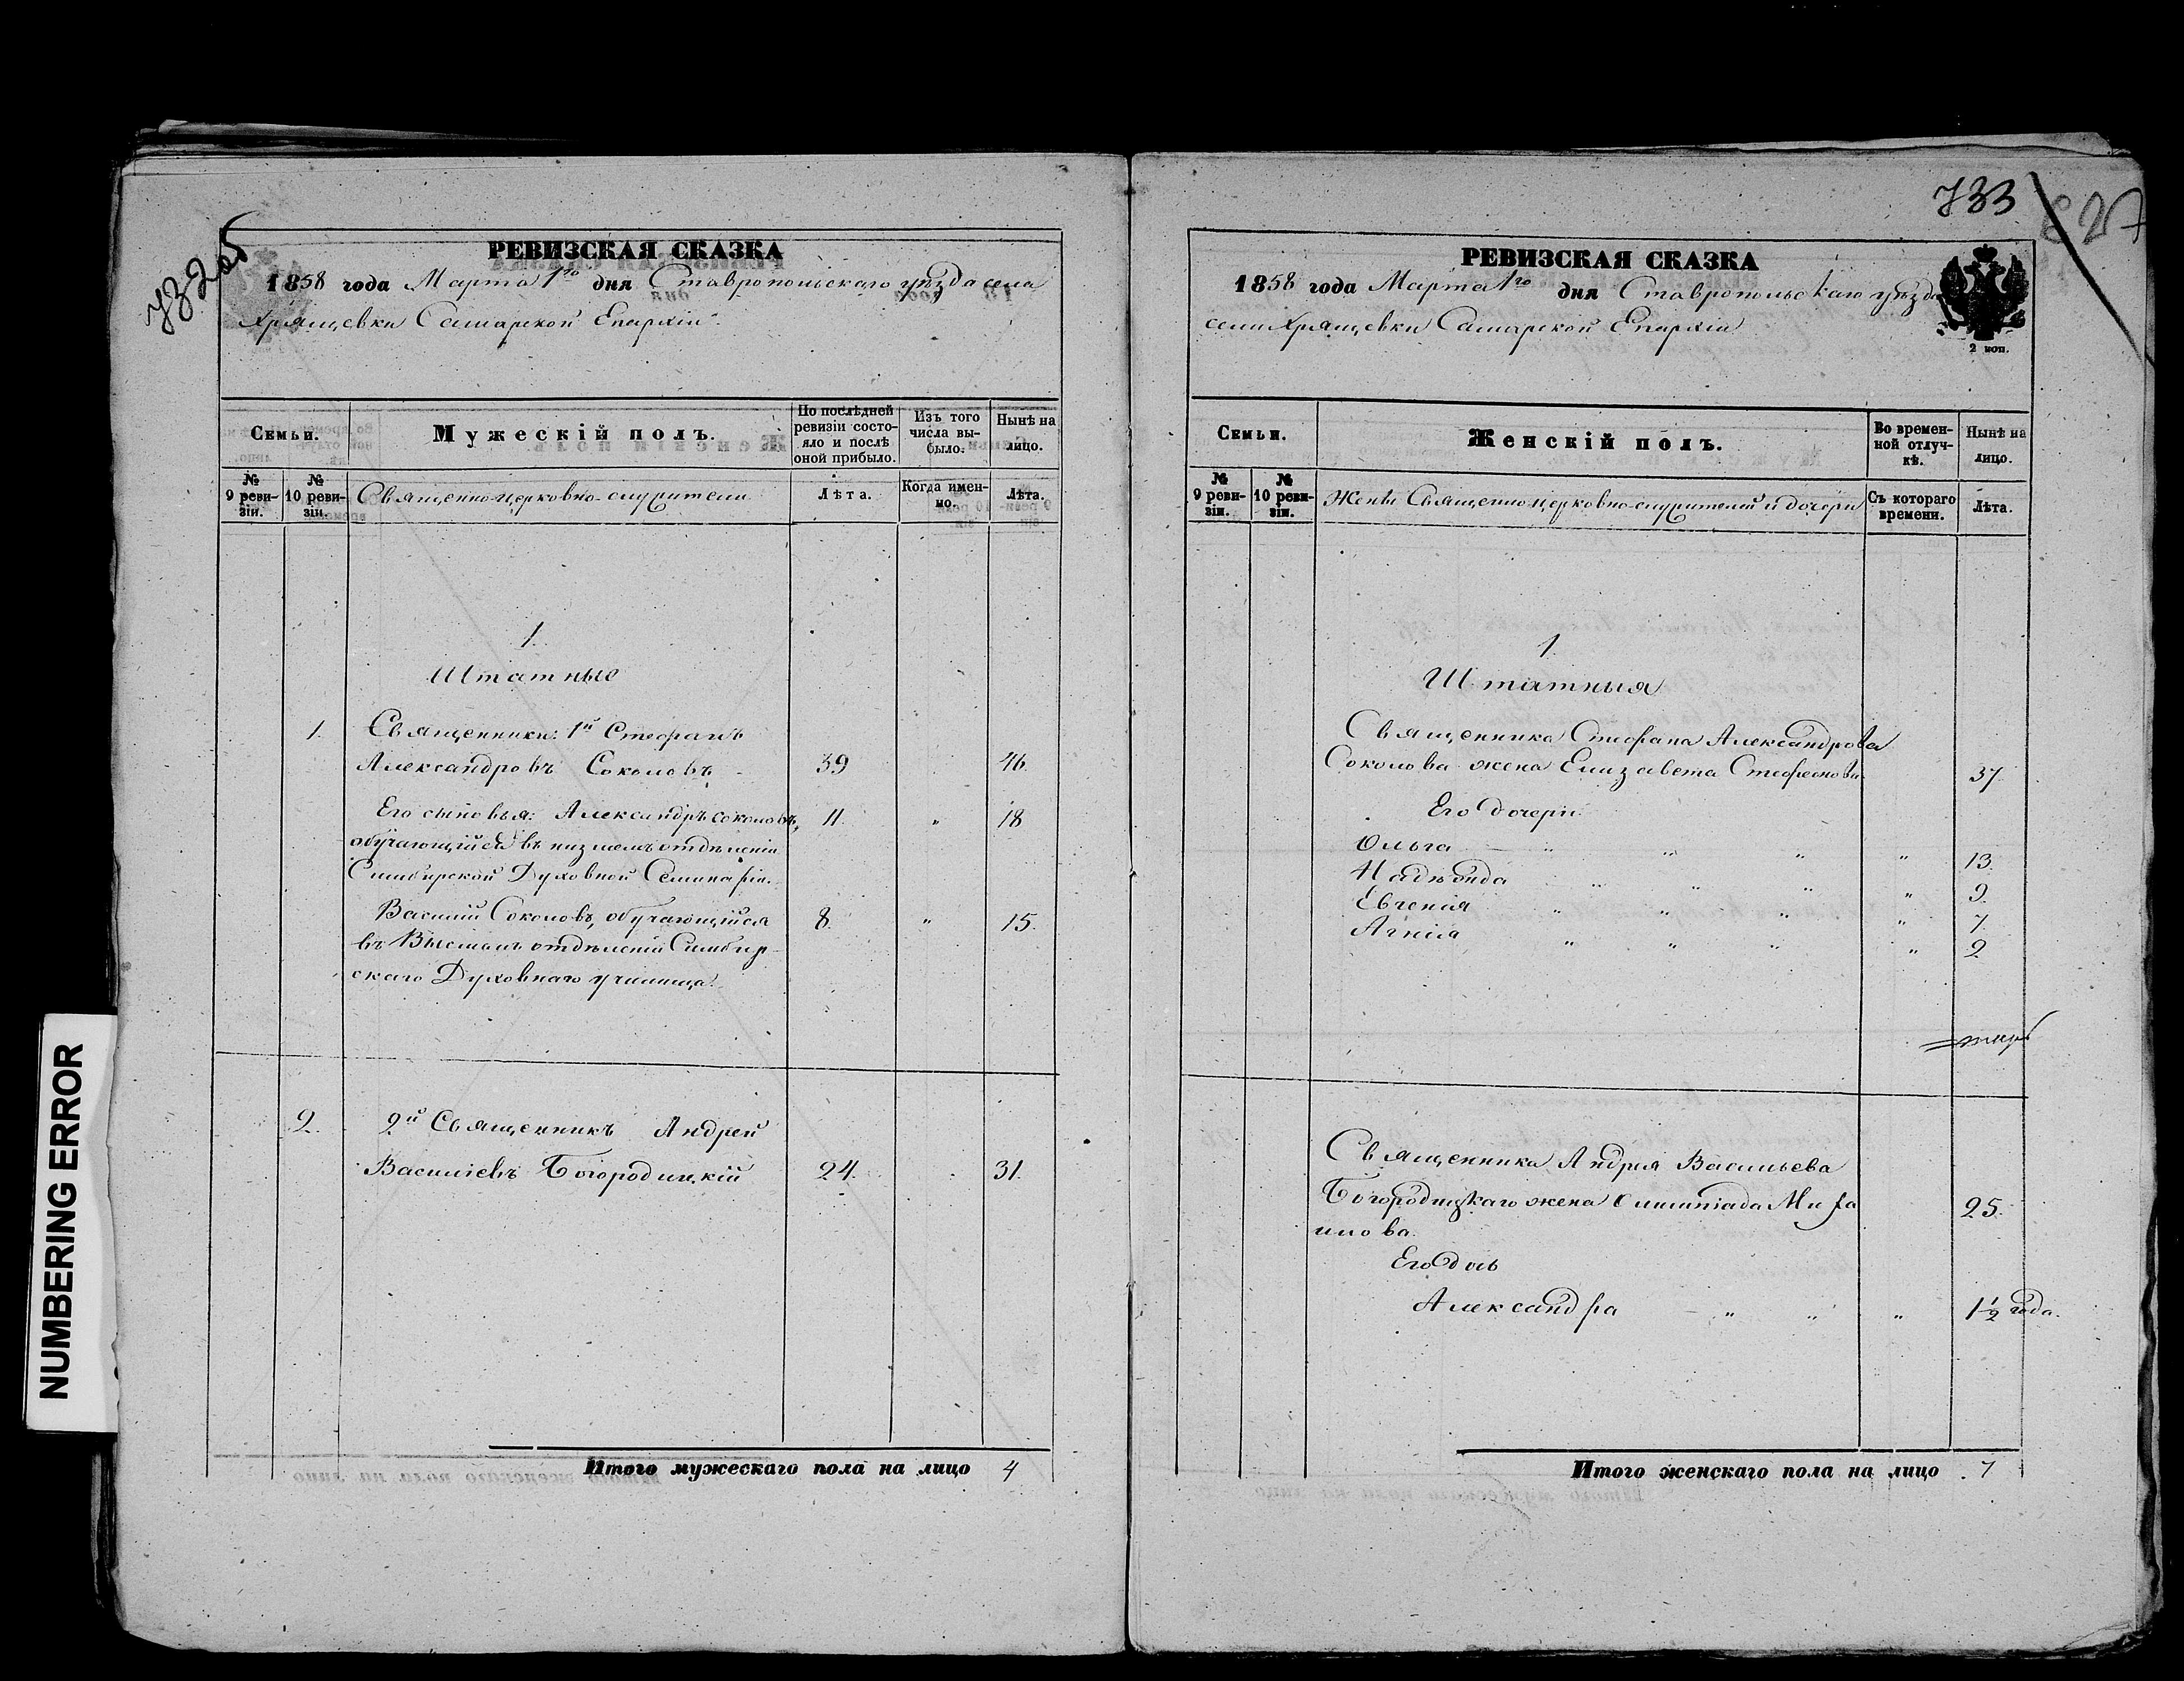 NUMBERING ERROR
732об
РЕВИЗСКАЯ СКАЗКА
1858 года Марта 1го дня Ставропольскаго уѣзда села
Хрящевки Самарской Епархіи
Семьи.
Мужескій полъ.
По послѣдней ревизіи состояло и послѣ оной прибыло.
Изъ того числа выбыло.
Нынѣ на лицо.
№ 9 ревизіи.
№ 10 ревизіи.
Священно-церковно-служители
Лѣта.
Когда именно.
Лѣта.
1.
Штатные
1. Священники: 1й Стефанъ
Александровъ Соколовъ - 39 46
Его сыновья: Александръ Соколовъ, 11. " 18
обучающійся въ низшемъ отдѣленіи
Симбирской Духовной Семинаріи.
Василій Соколовъ, обучающійся 8. " 15.
въ Высшемъ отдѣленіи Симбир-
скаго Духовнаго училища.
2. 2й Священникъ Андрей
Васильевъ Богородицкій 24. 31.
Итого мужескаго пола на лицо 4
733
827
РЕВИЗСКАЯ СКАЗКА
1858 года Марта 1го дня Ставропольскаго уѣзда
села Хрящевки Самарской Епархіи
2 коп.
Семьи.
Женскій полъ.
Во временной отлучкѣ.
Нынѣ на лицо.
№ 9 ревизіи.
№ 10 ревизіи.
Жены Священно-церковно-служителей и дочери
Съ котораго времени.
Лѣта.
1.
Штатныя
Священника Стефана Александрова
Соколова жена Елизавета Стефанова 37.
Его дочери:
Ольга " " " " 13.
Надѣжда " " " " 9.
Евгенія " " " " 7.
Агнія " " " " 2
Священника Андрея Васильева
Богородицкаго жена Олимпіада Миха 25.
илова.
Его дочь
Александра " " " 1½ года.
Итого женскаго пола на лицо 7